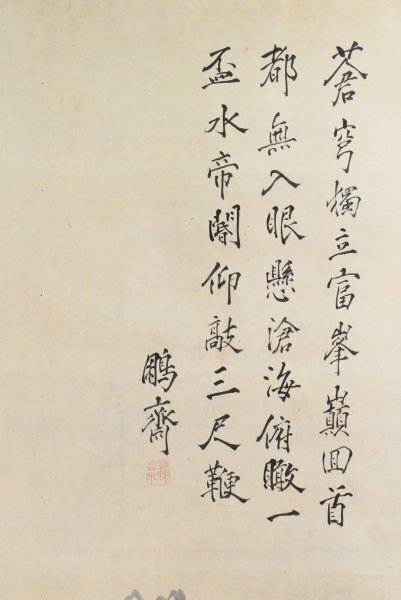 蒼穹獨立富峯巓回首
都無入眼懸滄海俯瞰一
盃水帝閽仰敲三尺鞭
鵬齋